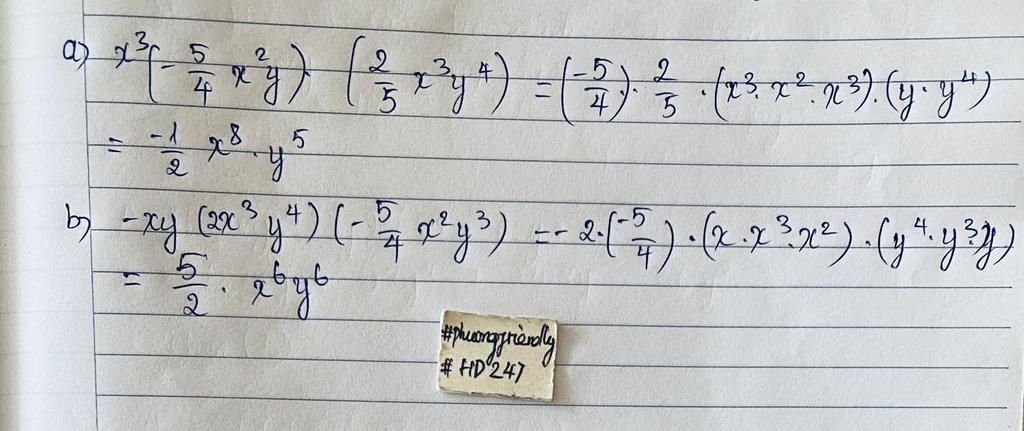 a) x³(-5/4 x²y)·(2/5 x³y⁴) = (-5/4)·2/5·(x³·x²·x³)·(y·y⁴)
= -1/2 x⁸·y⁵
b) -xy (2x³y⁴)(-5/4 x²y³) = -2·(-5/4)·(x·x³·x²)·(y⁴·y³·y)
= 5/2 · x⁶y⁶
#phuongfriendly
#HD247